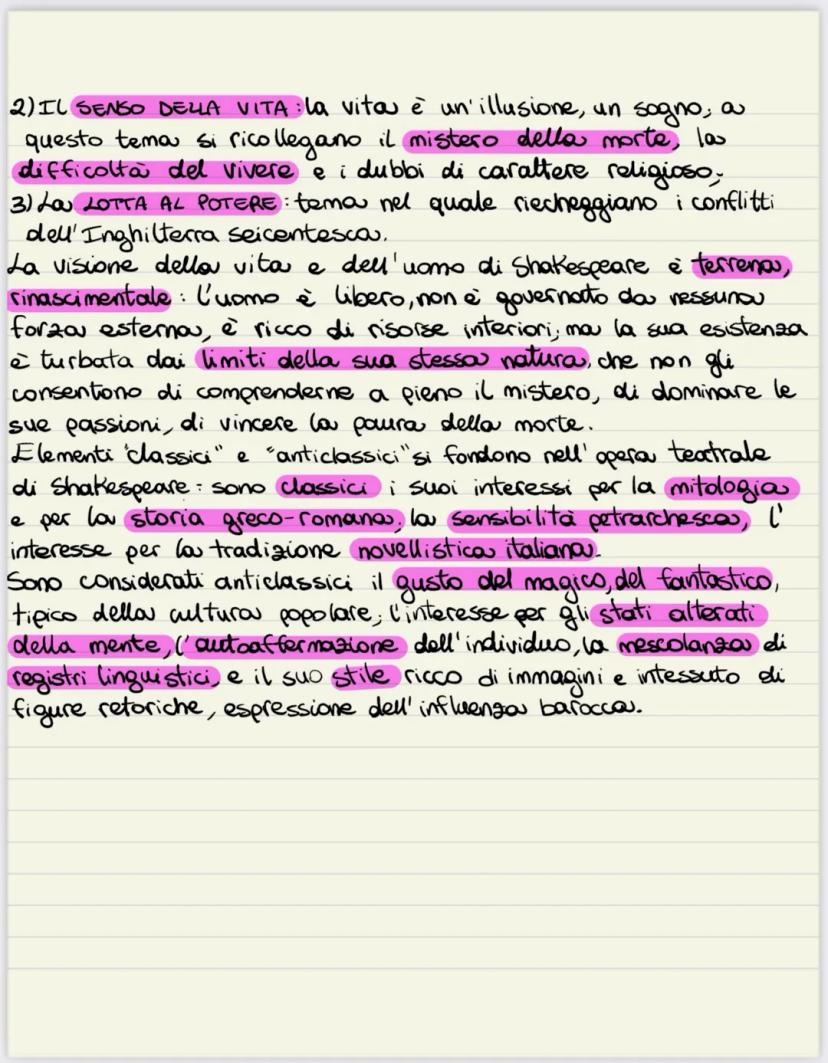 2) IL SENSO DELLA VITA: la vita è un'illusione, un sogno; a
questo tema si ricollegano il mistero della morte, la
difficoltà del vivere e i dubbi di carattere religioso;
3) La LOTTA AL POTERE: tema nel quale riecheggiano i conflitti
dell'Inghilterra seicentesca.
La visione della vita e dell'uomo di Shakespeare è terrena,
rinascimentale: l'uomo è libero, non è governato da nessuna
forza esterna, è ricco di risorse interiori; ma la sua esistenza
è turbata dai limiti della sua stessa natura, che non gli
consentono di comprenderne a pieno il mistero, di dominare le
sue passioni, di vincere la paura della morte.
Elementi "classici" e "anticlassici" si fondono nell'opera teatrale
di Shakespeare: sono classici i suoi interessi per la mitologia
e per la storia greco-romana, la sensibilità petrarchesca, l'
interesse per la tradizione novellistica italiana.
Sono considerati anticlassici il gusto del magico, del fantastico,
tipico della cultura popolare; l'interesse per gli stati alterati
della mente, l'autoaffermazione dell'individuo, la mescolanza di
registri linguistici, e il suo stile ricco di immagini e intessuto di
figure retoriche, espressione dell'influenza barocca.